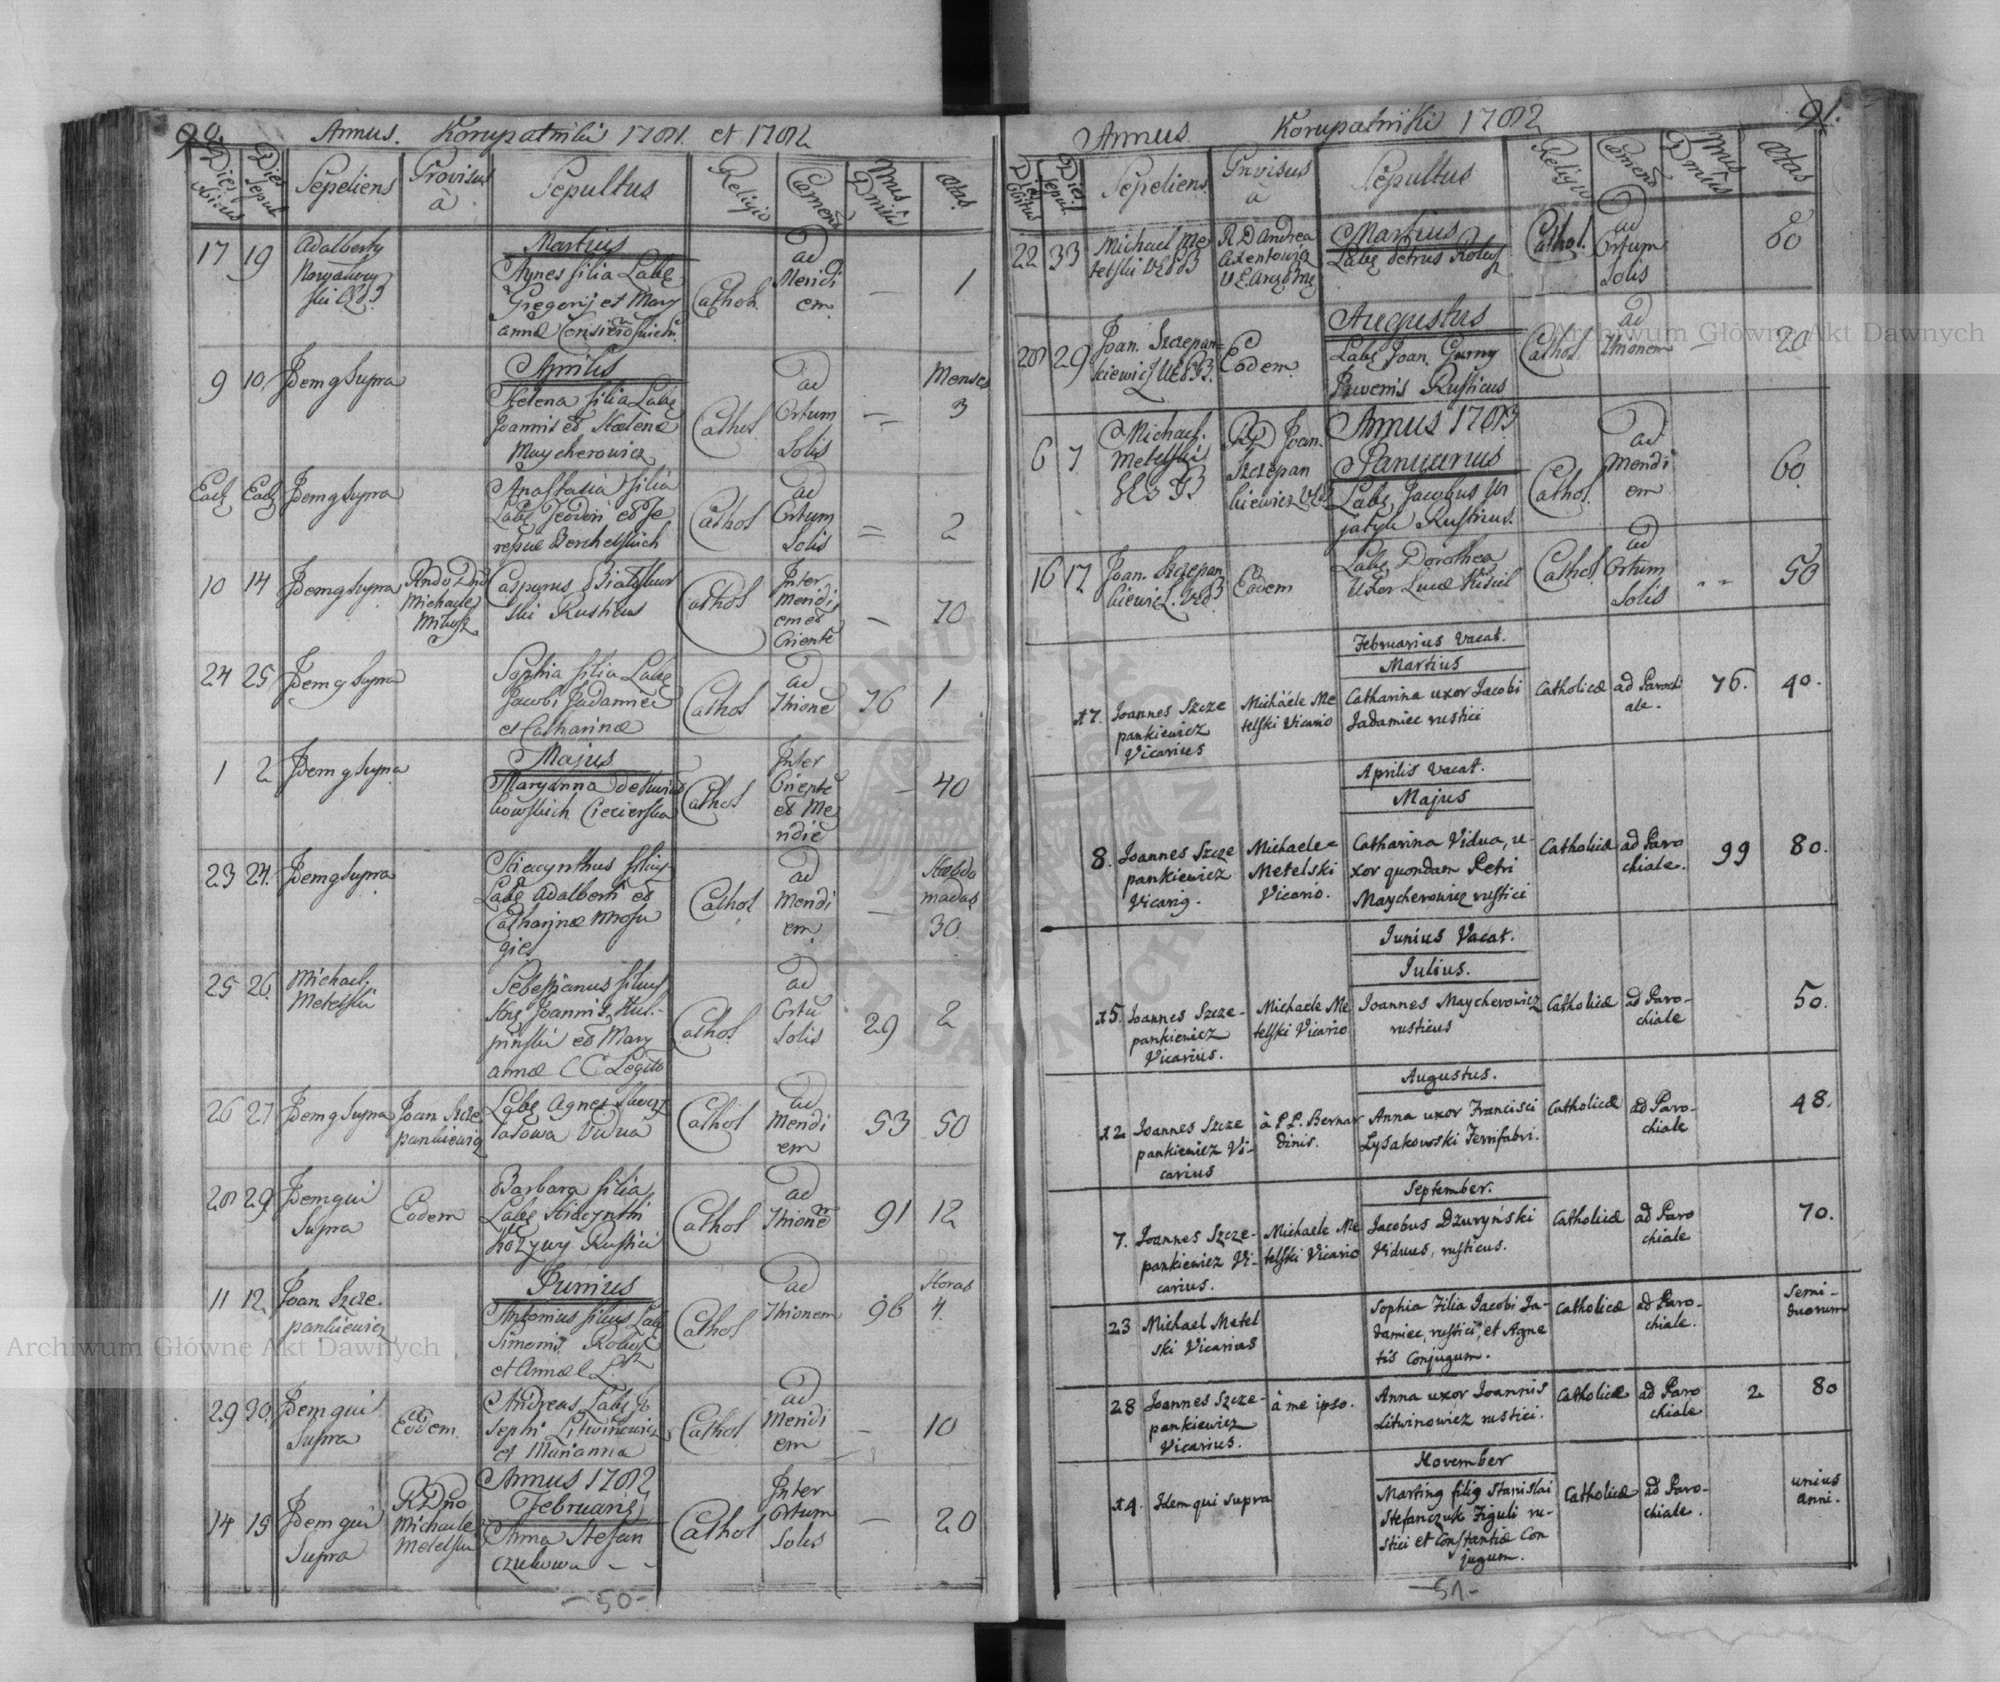 90.
Annus. Korupatniki 1781. et 1782
Dies Obitus
Dies Sepult
Sepeliens
Provisus à
Sepultus
Religio
Coemend
Nrus Dmûs
Ætas.
17 19 Adalbertg
Martius
Agnes filia Labs
Gregorij et Mary
annæ
Cathol.
ad
Meridi
em
— 1
9 10 Idem q Supra
Aprilis
Helena filia Labs
Joannis et Helenæ
Maycherowicz
Cathol
ad
Ortum
Solis
—
Menses
3
Ead Ead Idem q Supra
Anastasia filia
Cathol
ad
Ortum
Solis
= 2
10 14 Idem q Supra
Rndo Dno
Michaele
Casparus
ski Rusticus
Cathol
Inter
Meridi
em et
Oriente
— 70
24 25 Idem q Supra
Sophia filia Labs
Jacobi Jadamiec
et Catharinæ
Cathol
ad
Thione
76 1
1 2 Idem q Supra
Majus
Maryanna de
Ciecierska
Cathol
Inter
Oriente
et Me
ridie
— 40
23 24. Idem q Supra
Hiacynthus filius
Labs Adalberti et
Catharinæ
Cathol
ad
Meridi
em
—
Hebdo
madas
30.
25 26. Michael
Metelski
Sebestianus filius
Joannis
et Mary
annæ CC Legitt
Cathol
ad
Ortu
Solis
29 2
26 27 Idem q Supra
Joan Szcze
pankiewicz
Labs Agnes
Vidua
Cathol
ad
Meridi
em
53 50
28 29 Idem qui
Supra
Eodem
Barbara filia
Labs Hiacynthi
Rustici
Cathol
ad
Thionem
91 12
11 12 Joan Szcze
pankiewicz
Junius
Antonius filius Labs
Simonis
et Annæ
Cathol
ad
Thionem
96
Horas
4.
29 30, Idem qui
Supra
Eodem
Andreas Labs Jo
sephi Litwinowicz
et Marianna
Cathol
ad
Meridi
em
— 10
14 15 Idem qui
Supra
R Dno
Michaele
Metelski
Annus 1782
Februarius
Anna Stefan
czukowa - -
Cathol
Inter
Ortum
Solis
— 20
- 50 -
91.
Annus Korupatniki 1782
Dies Obitus
Dies Sepul.
Sepeliens
Provisus à
Sepultus
Religio
Coemend
Nrus Dmûs
Ætas
22 33 Michael Me
telski
R D Andrea
Axentowicz
Martius
Labs Petrus
Cathol.
ad
Ortum
Solis
80
28 29 Joan. Szczepan=
kiewicz
Eodem.
Augustus
Labs Joan. Gurny
Juvenis Rusticus
Cathol.
ad
Thionem
— 20
6 7 Michael.
Metelski
RD Joan.
Szczepan
kiewicz
Annus 1783
Januarius
Labs Jacobus
Rusticus.
Cathol.
ad
Meridi
em
60.
16 17 Joan. Szczepan
kiewicz.
Eodem
Labs Dorothea
Uxor Lucæ Kisiel
Cathol.
ad
Ortum
Solis
- - 50
Februarius Vacat.
Martius
17. Ioannes Szcze
pankiewicz
Vicarius
Michaele Me
telski Vicario
Catharina uxor Jacobi
Jadamiec rustici
Catholicæ
ad Parochi
ale.
76. 40.
Aprilis Vacat.
Majus
8. Ioannes Szcze
pankiewicz
Vicarig.
Michaele
Metelski
Vicario.
Catharina Vidua, u-
xor quondam Petri
Maycherowicz rustici
Catholicæ
ad Paro
chiale.
99 80.
Iunius Vacat.
Iulius.
15. Ioannes Szcze-
pankiewicz
Vicarius.
Michaele Me
telski Vicario
Ioannes Maycherowicz
rusticus
Catholicæ
ad Paro-
chiale
50.
Augustus.
12 Ioannes Szcze
pankiewicz Vi-
carius
à P.P. Bernar
dinis.
Anna uxor Francisci
Lysakowski Ferrifabri.
Catholicæ
ad Paro-
chiale
48.
September.
7. Ioannes Szcze-
pankiewicz Vi-
carius.
Michaele Me
telski Vicario
Jacobus Dzuryński
Viduus, rusticus.
Catholicæ
ad Paro
chiale
70.
23 Michael Metel
ski Vicarius
Sophia Filia Iacobi Ja-
damiec, rustici, et Agne
tis Conjugum.
Catholicæ
ad Paro-
chiale.
Semi-
duorum
28 Ioannes Szcze-
pankiewicz
Vicarius.
à me ipso.
Anna uxor Ioannis
Litwinowicz rustici.
Catholicæ
ad Paro
chiale
2 80
November
14. Idem qui supra
Marting filig Stanislai
Stefanczuk Figuli ru-
stici et Constantiæ Con
jugum.
Catholicæ
ad Paro-
chiale.
unius
anni.
- 51 -
Archiwum Główne Akt Dawnych
Archiwum Główne Akt Dawnych